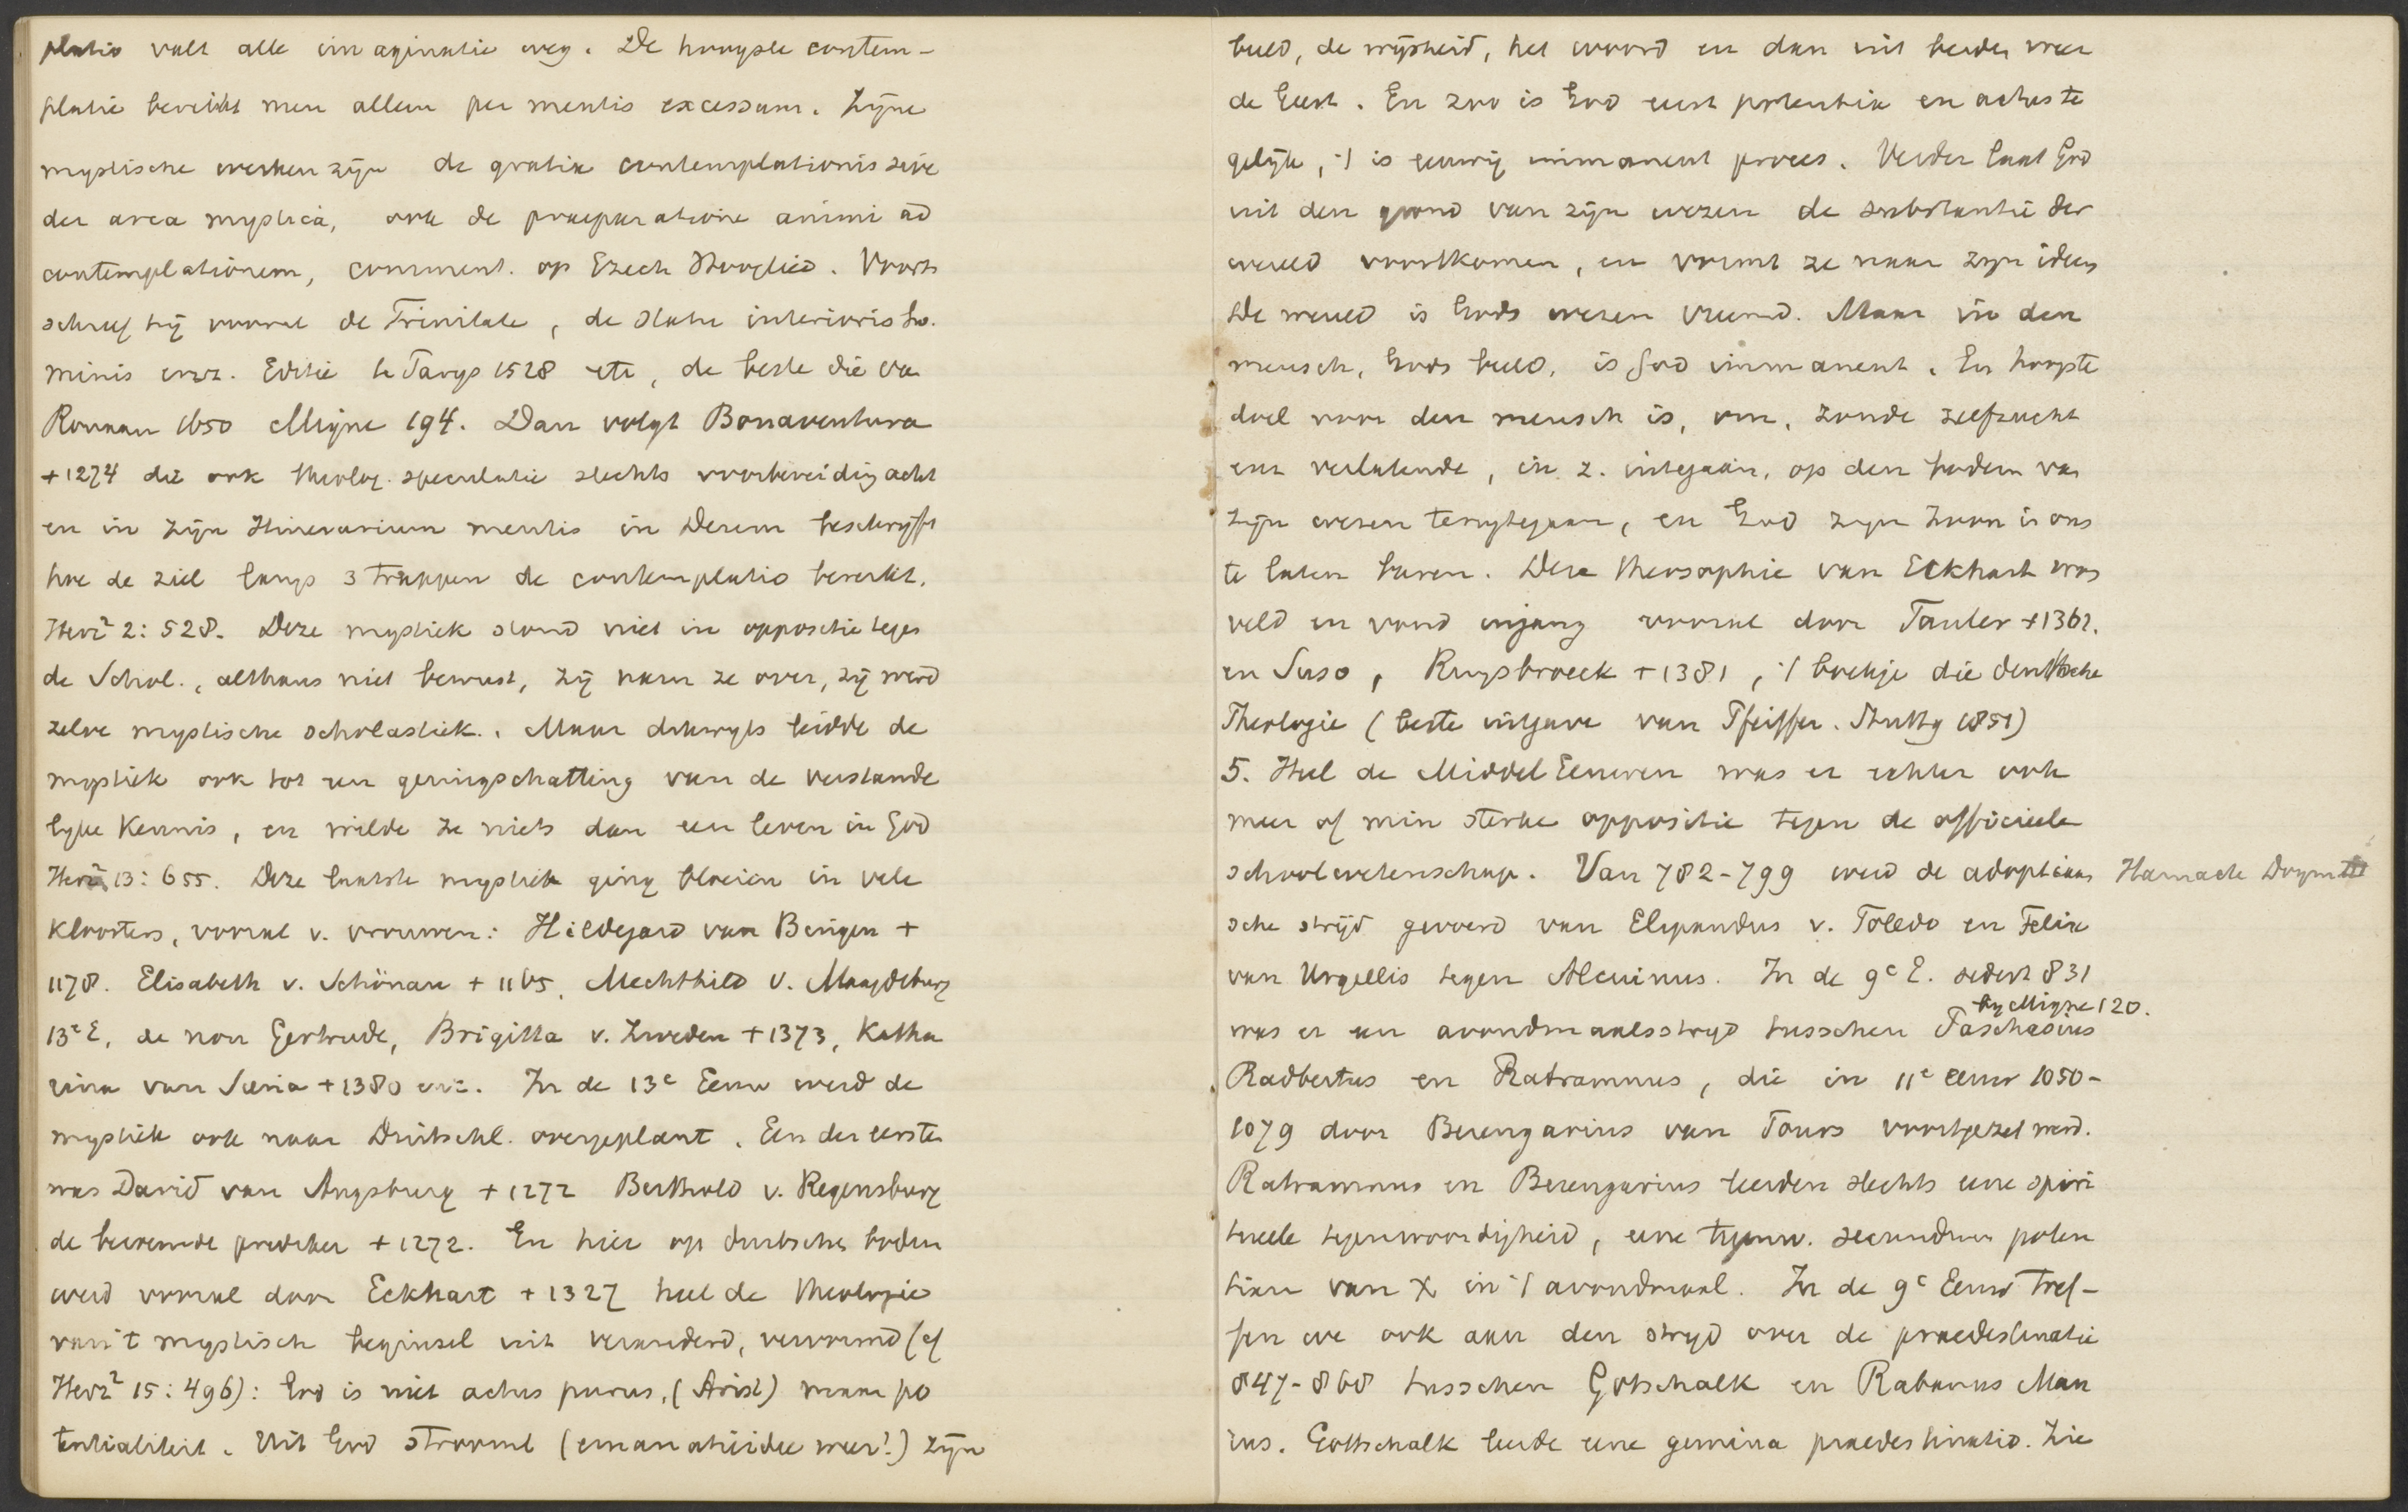 platio valt alle imaginatie weg. De hoogste contem-
platie bereikt men alleen per mentis excessum. Zijne
mystische werken zijn de gratia contemplationis seu
der arca mystica, ook de praeparatione animi ad
contemplationem, comment. op Ezech Hooglied. Voorts
schreef hij vooral de Trinitate, de statu interioris ho.
minis enz. Editie te Parys 1528 etc, de beste die van
Rouaan 1650 Migne 194. Dan volgt Bonaventura
+1274 die ook theolog. speculatie slechts voorbereiding acht
en in zijn Itinerarium mentis in Deum beschrijft
hoe de ziel langs 3 trappen de contemplatio bereikt.
Herz² 2: 528. Deze mystiek stond niet in oppositie tegen
de Schol., althans niet bewust, zij nam ze over, zij werd
zelve mystische scholastiek. Maar dikwyls leidde de
mystiek ook tot een geringschatting van de verstande
lyke Kennis, en wilde ze niets dan een leven in God
Herz² 13: 655. Deze laatste mystiek ging bloeien in vele
Kloosters, vooral v. vrouwen: Hildegard van Bingen +
1178. Elisabeth v. Schönau + 1165, Mechthild v. Maagdeburg
13e E, de non Gertrude, Brigitta v. Zweden +1373, Katha
rina van Siena +1380 enz. In de 13e Eeuw werd de
mystiek ook naar Duitschl. overgeplant. Een der eersten
was David van Augsburg +1272 Berthold v. Regensburg
de beroemde prediker +1272. En hier op duitschen bodem
werd vooral door Eckhart +1327 heel de theologie
van 't mystisch beginsel uit veranderd, vervormd (cf
Herz² 15: 496): God is niet actus purus, (Arist) maar po
tentialiteit. Uit God stroomt (emanatieidee weer!) zijn
beeld, de wijsheid, het woord en dan uit beiden weer
de Geest. En zoo is God eerst potentia en actus te
gelijk, 't is eeuwig immanent proces. Verder laat God
uit den grond van zijn wezen de substantie der
wereld voortkomen, en vormt ze naar zijn ideen
De wereld is Gods wezen vreemd. Maar in den
mensch, Gods beeld, is God immanent. En hoogste
doel voor den mensch is, om, zonde zelfzucht
enz verlatende, in z. integaan, op den bodem van
zijn wezen terugtegaan, en God zijn Zoon in ons
te laten baren. Deze theosophie van Eckhart was
veld en vond ingang vooral door Tauler +1361.
en Suso, Ruysbroeck +1381, 't boekje die deutsche
Theologie (beste uitgave van Pfeiffer. Stuttg 1851)
5. Heel de Middel Eeuwen was er echter ook
meer of min sterke oppositie tegen de officieele
schoolwetenschap. Van 782-799 werd de adoptiaan Harnack Dogm III
sche strijd gevoerd van Elipandus v. Toledo en Felix
van Urgellis tegen Alcuinus. In de 9e E. sedert 831
by Migne 120.
was er een avondmaalsstryd tusschen Paschasius
Radbertus en Ratramnus, die in 11e eeuw 1050-
1079 door Berengarius van Tours voortgezet werd.
Ratramnus en Berengarius leerden slechts eene spiri
tueele tegenwoordigheid, eene tegenw. secundum poten
tiam van X in 't avondmaal. In de 9e Eeuw tref-
fen we ook aan den stryd over de praedestinatie
847-868 tusschen Gotschalk en Rabanus Mau
rus. Gottschalk leerde eene gemina praedestinatio. Zie